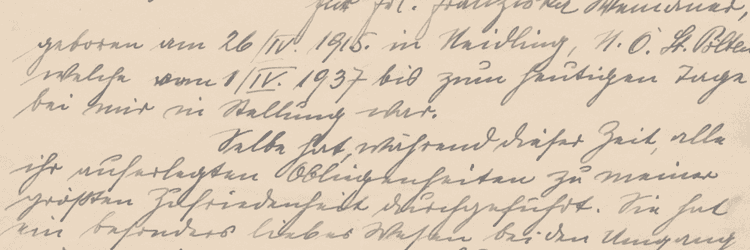 für Frl. Franziska
geboren am 26/IV. 1915. in Neidling, N. Ö. St. Pölten
welche vom 1/IV. 1937 bis zum heutigen Tage
bei mir in Stellung war.
Selbe hat, während dieser Zeit, alle
ihr auferlegten Obliegenheiten zu meiner
größten Zufriedenheit durchgeführt. Sie hat
ein besonders liebes Wesen bei den Umgang